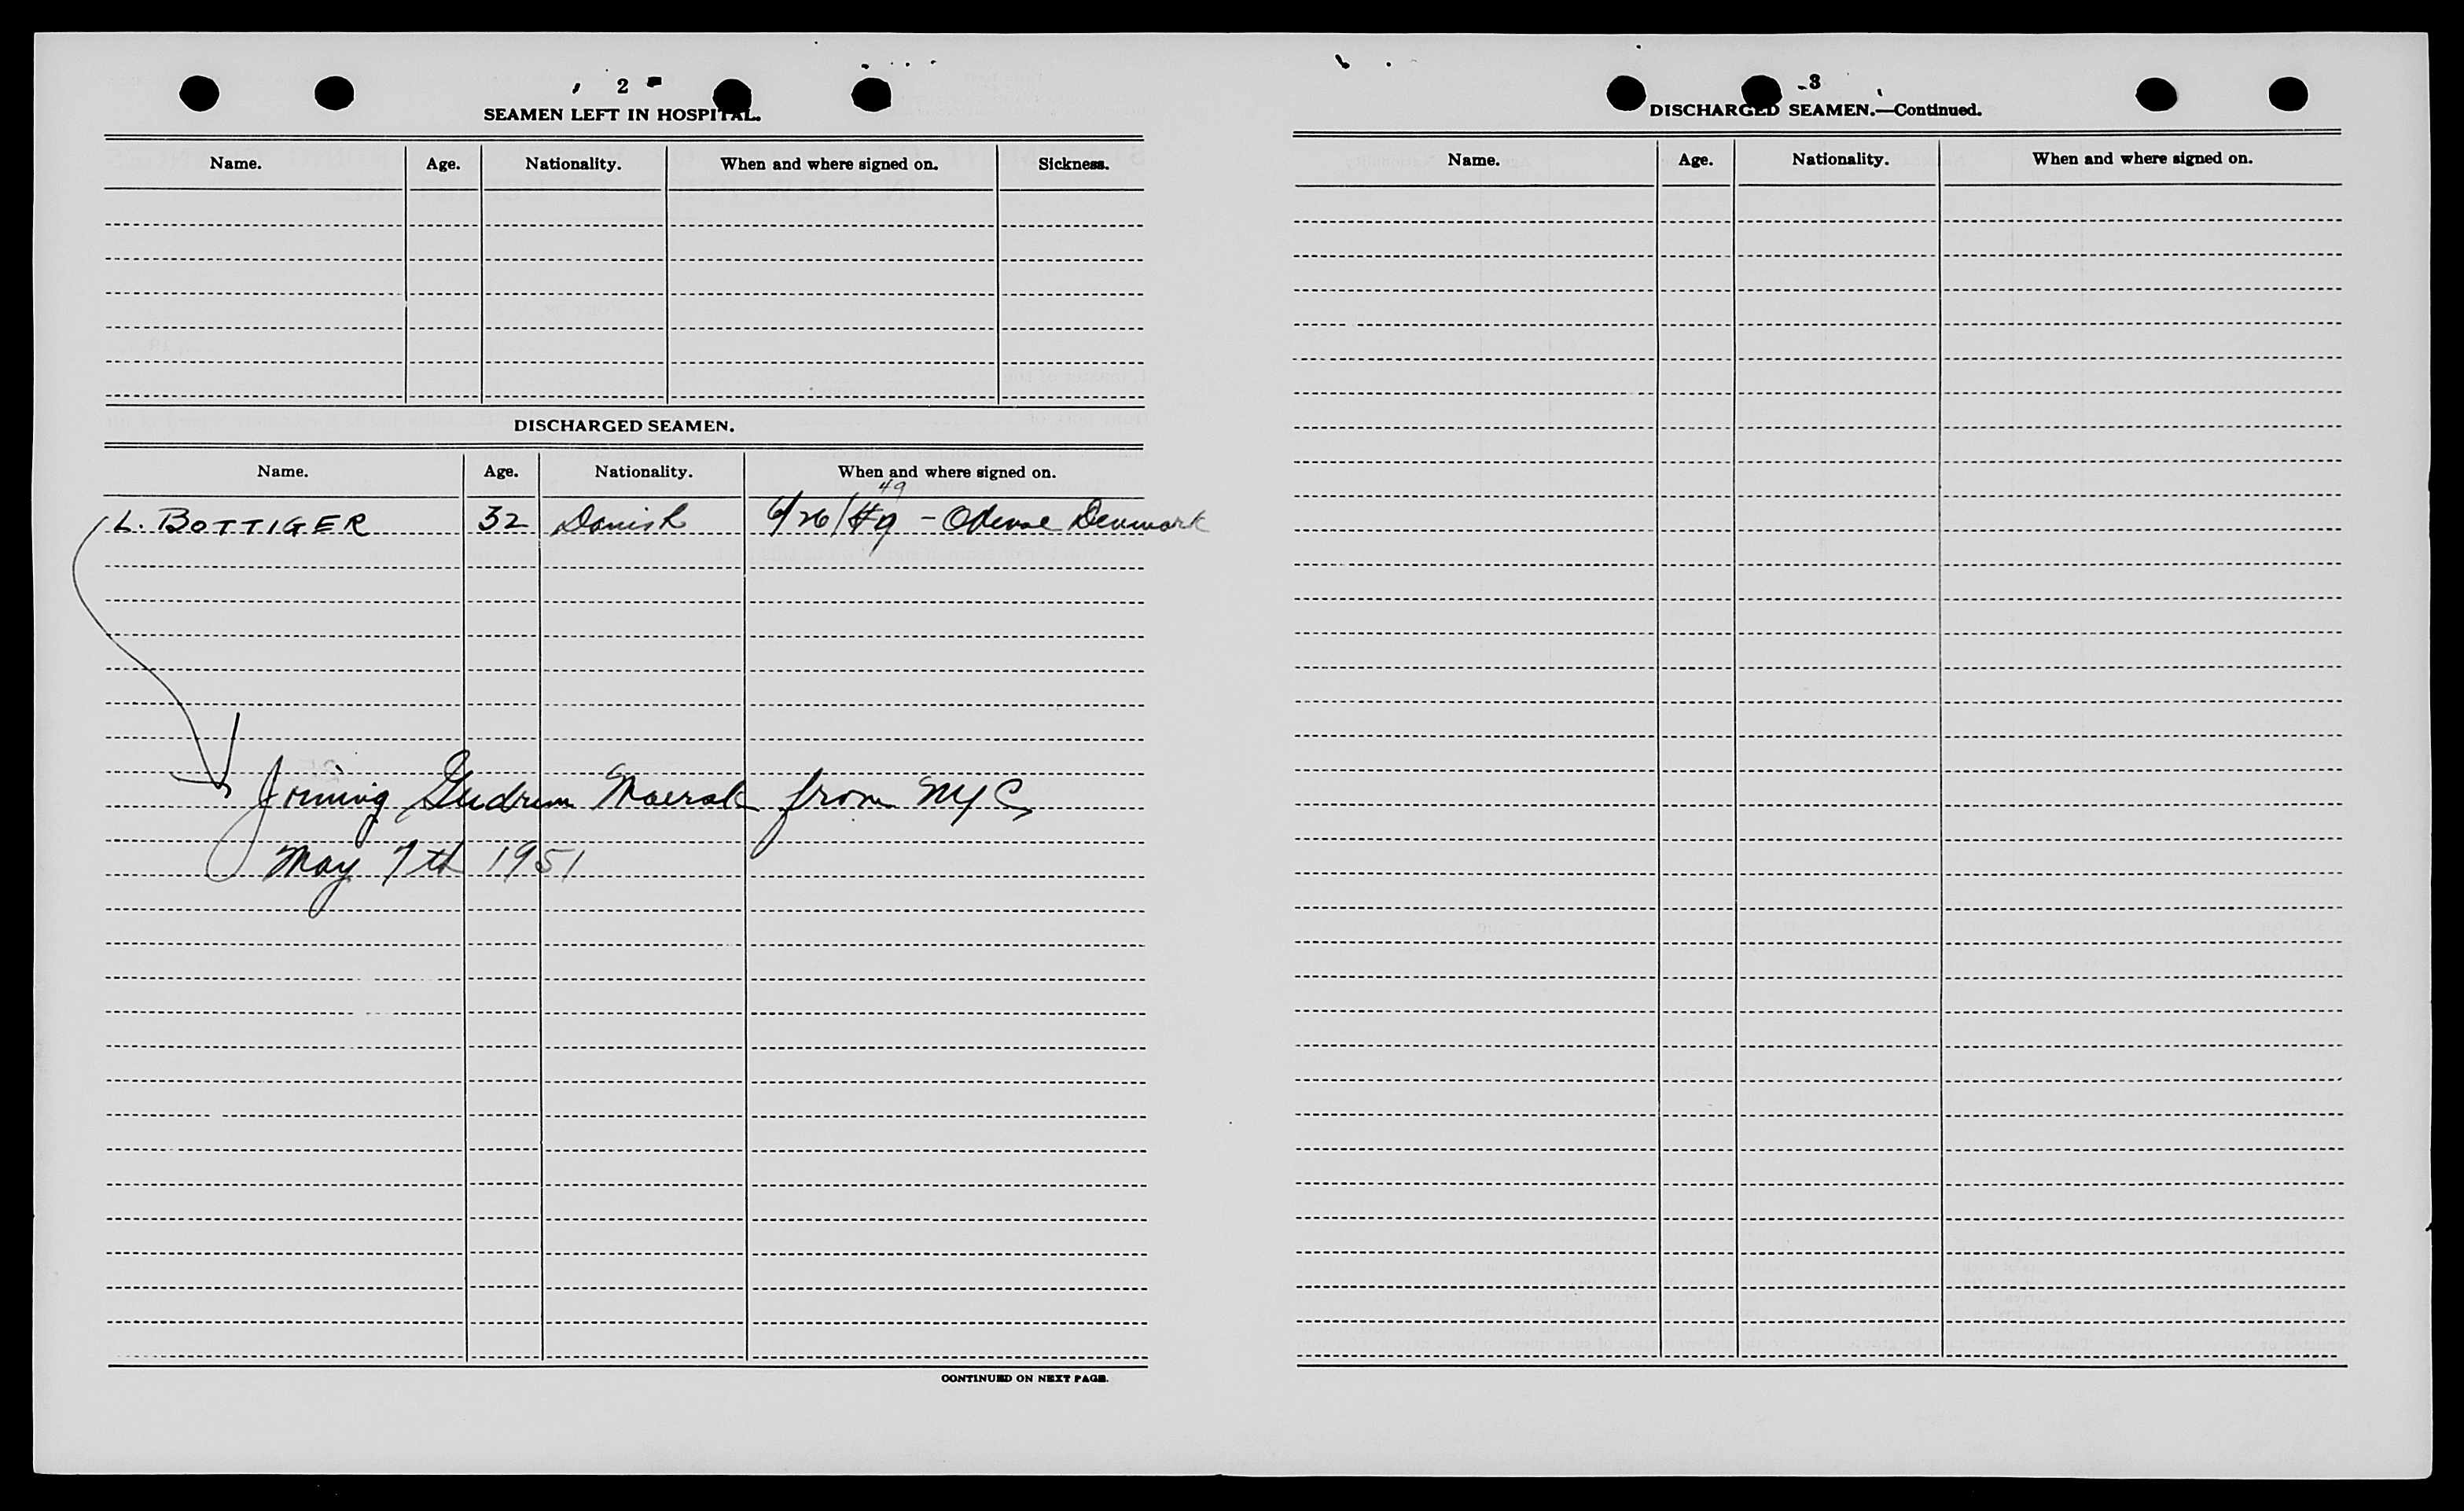 2
SEAMEN LEFT IN HOSPITAL.
Name. Age. Nationality. When and where signed on. Sickness.
DISCHARGED SEAMEN.
Name. Age. Nationality. When and where signed on.
49
L. BOTTIGER 32 Danish 6/26/49 - Odense Denmark
Joining Gudrun Maersk from NYC
May 7th 1951
CONTINUED ON NEXT PAGE.
3
DISCHARGED SEAMEN.—Continued.
Name. Age. Nationality. When and where signed on.